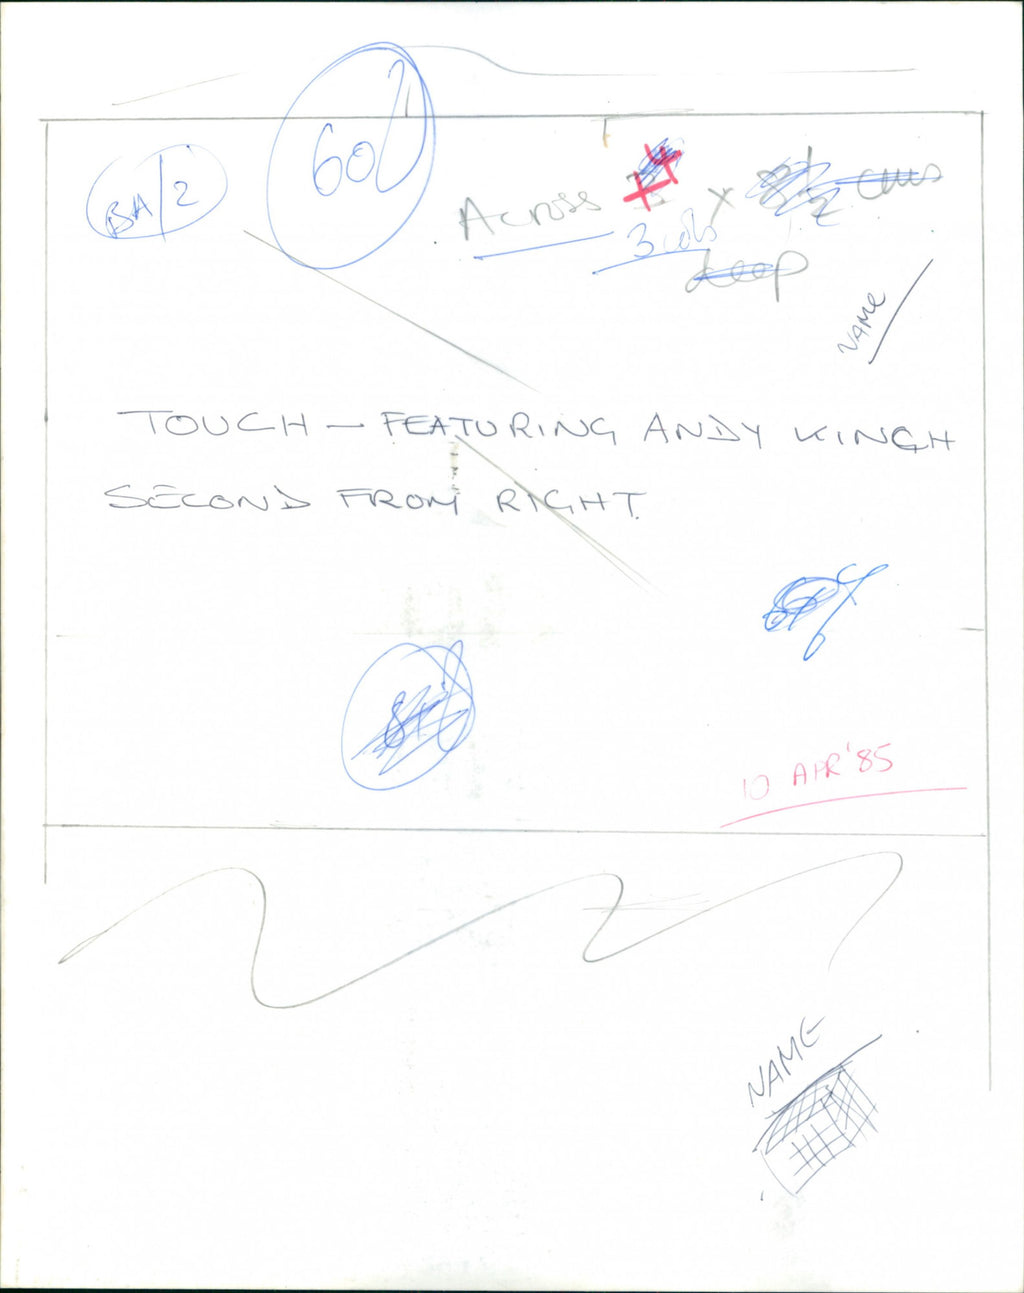 BA/2
60
Across x cms
3 cols
deep
NAME
TOUCH — FEATURING ANDY KINGH
SECOND FROM RIGHT.
10 APR '85
NAME